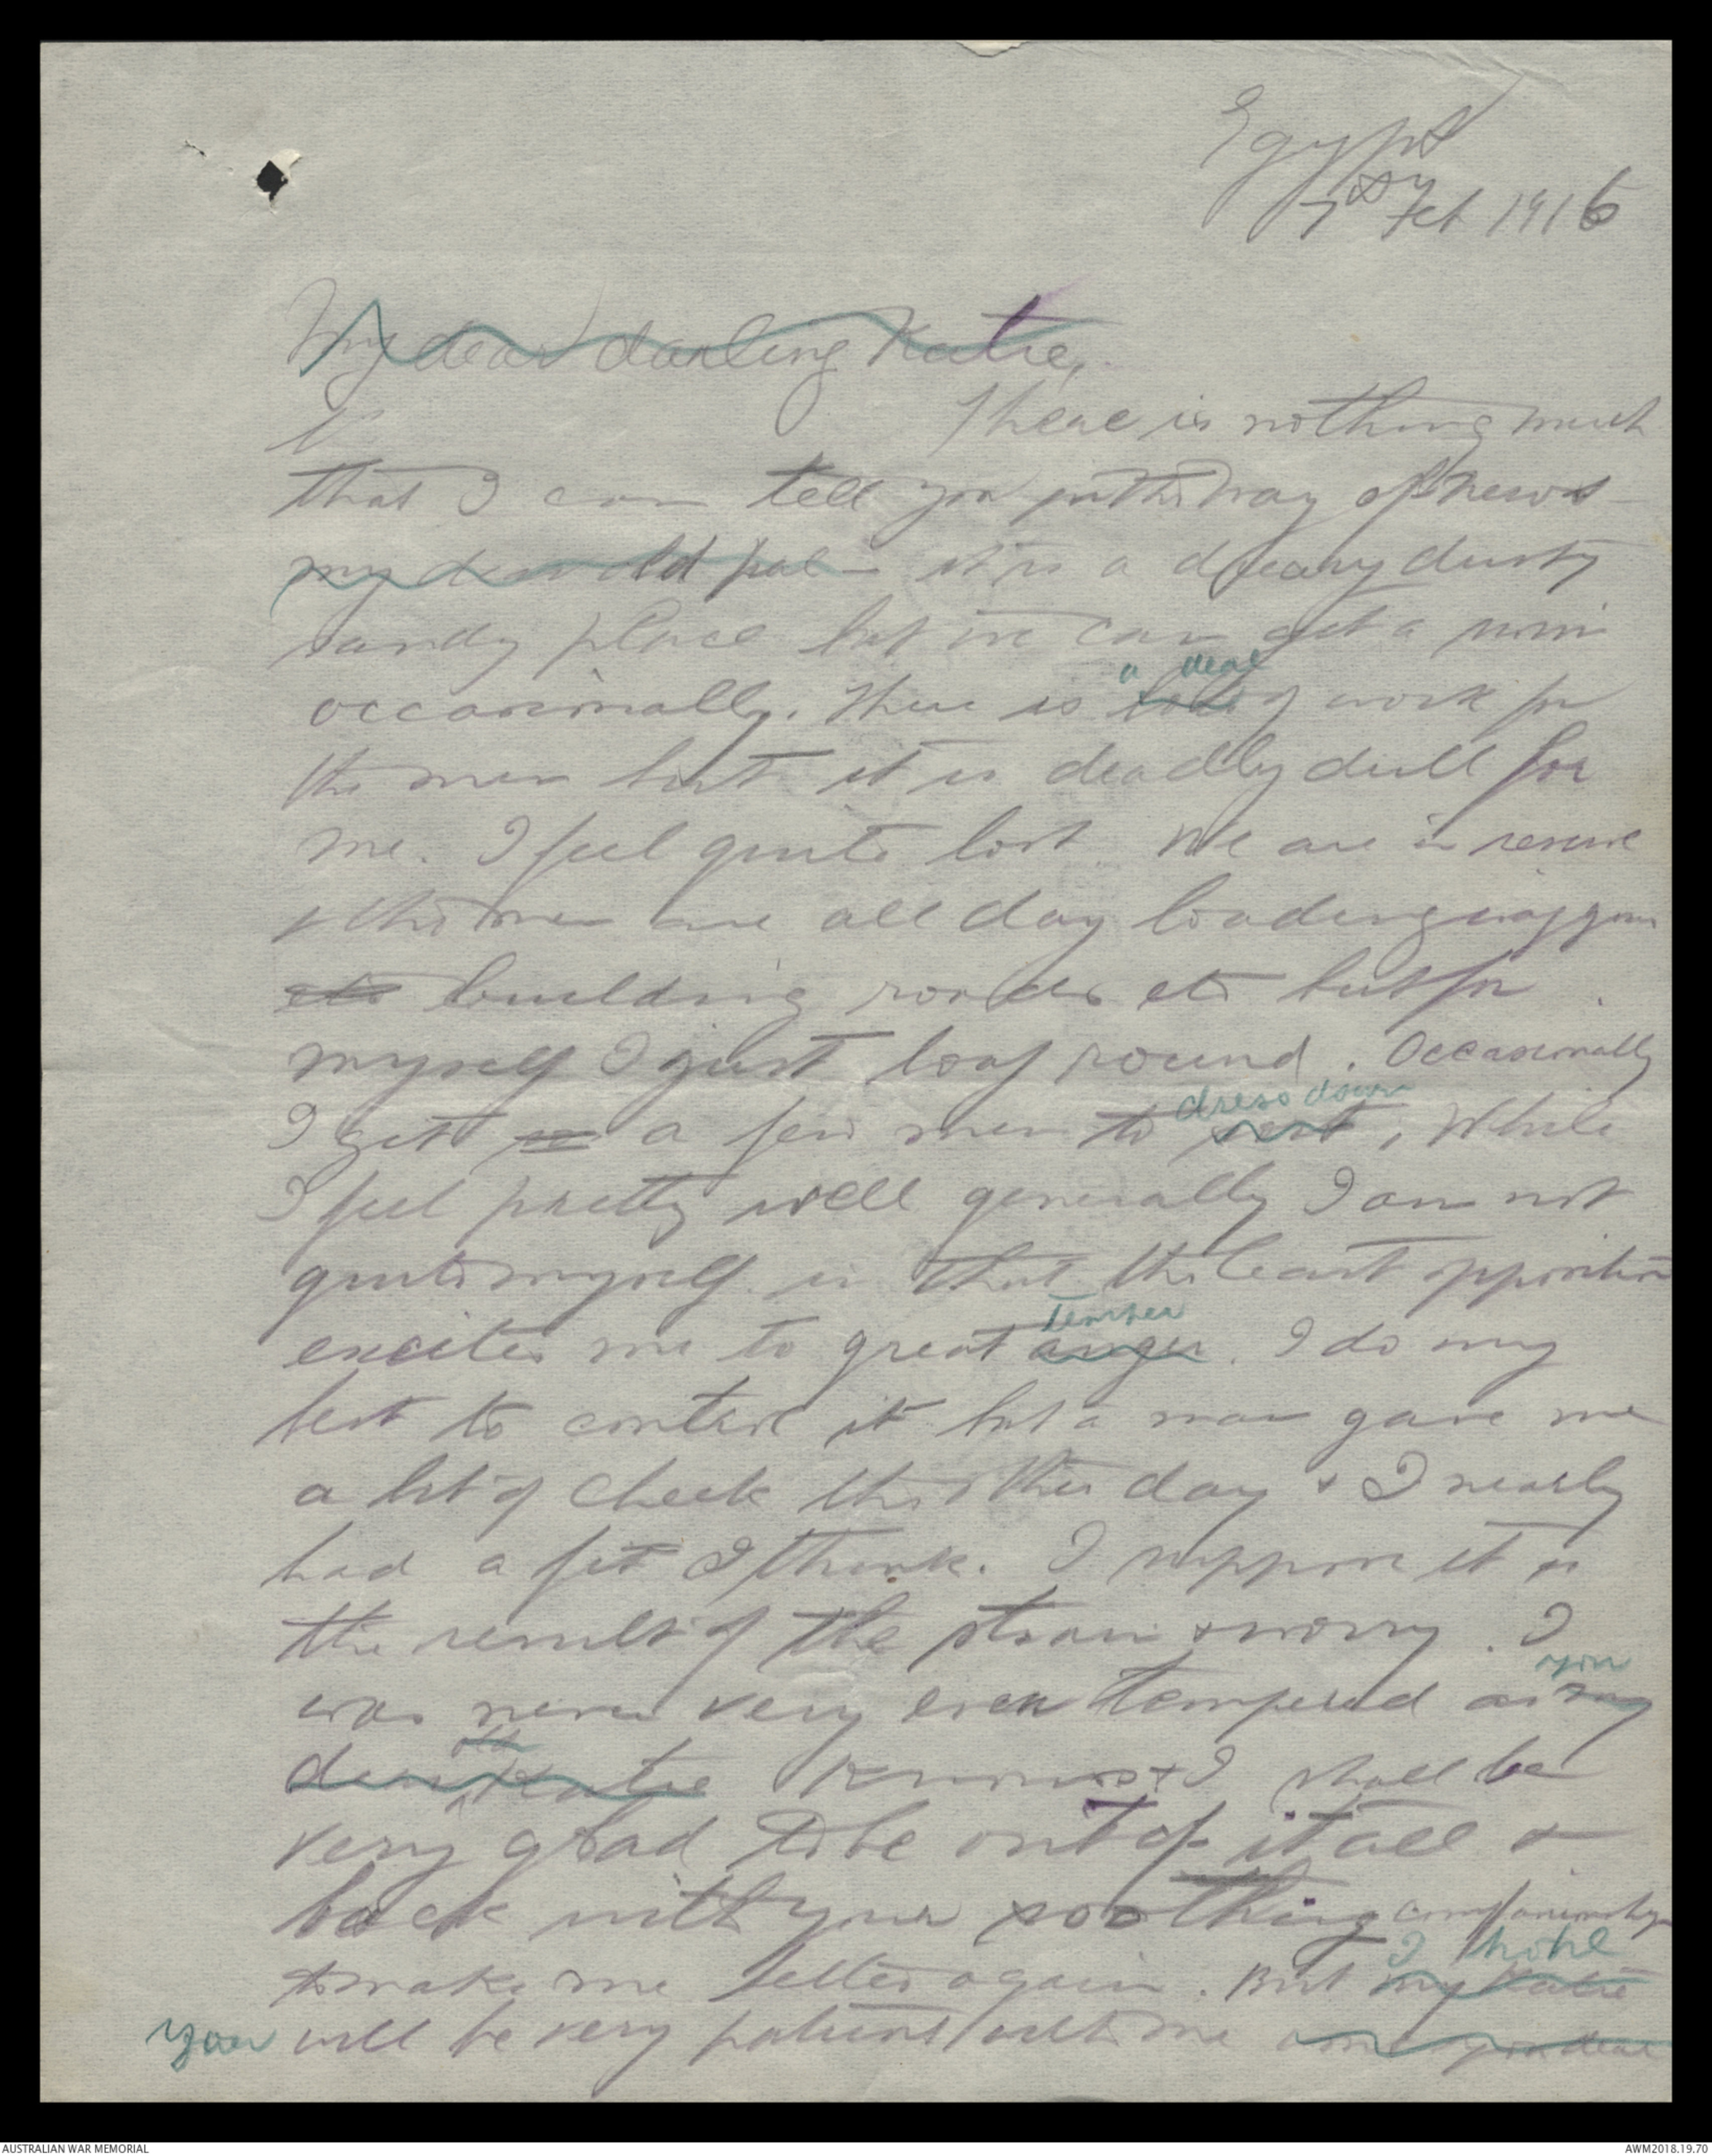 Egypt
7th Feby 1916
My dear darling Katie,
There is nothing much
that I can tell you in the way of news
my dear old pal - it is a dreary dusty
sandy place but we can get a swim
a deal
occasionally. There is lots of work for
the men but it is deadly dull for
me. I feel quite lost. We are in reserve
& the men are all day loading waggons
etc building roads etc but for
myself I just loaf round. Occasionally
dress down
I get a few men to , While
I feel pretty well generally I am not
quite myself in that the least opposition
temper
excites me to great anger. I do my
best to control it but a man gave me
a bit of cheek the other day & I nearly
had a fit I think. I suppose it is
the result of the strain & worry. I
you
was never very even tempered as my
old
dear Katie knows & I shall be
very glad to be out of it all &
back with your soothing companionship
I hope
to make me better again. But my Katie
you will be very patient with me won't you dear
AUSTRALIAN WAR MEMORIAL
AWM2018.19.70